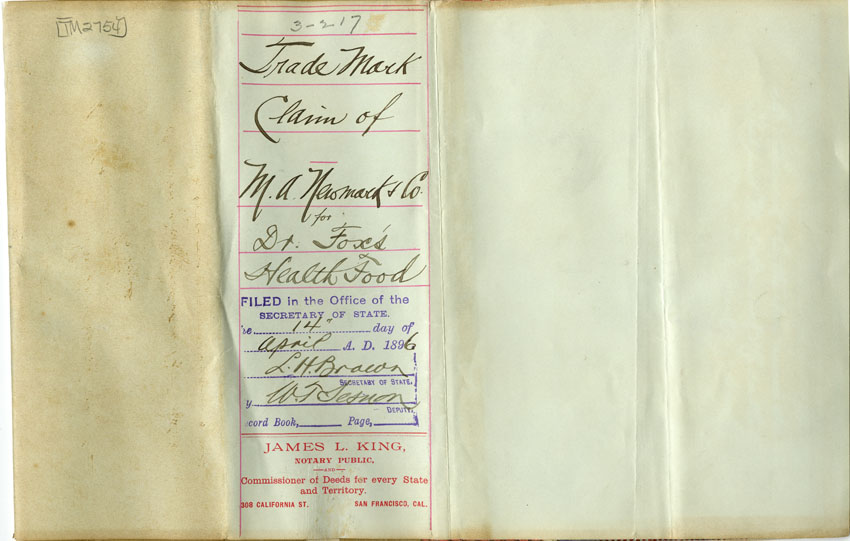 [TM2754]
3-217
Trade Mark
Claim of
M. A. Newmark & Co.
for
Dr. Fox's
Health Food
FILED in the Office of the
SECRETARY OF STATE.
he 14" day of
April A. D. 1896
L. H. Brown
SECRETARY OF STATE.
y W. T. Sesnon
DEPUTY.
cord Book, Page,
JAMES L. KING,
NOTARY PUBLIC,
—AND—
Commissioner of Deeds for every State
and Territory.
308 CALIFORNIA ST. SAN FRANCISCO, CAL.